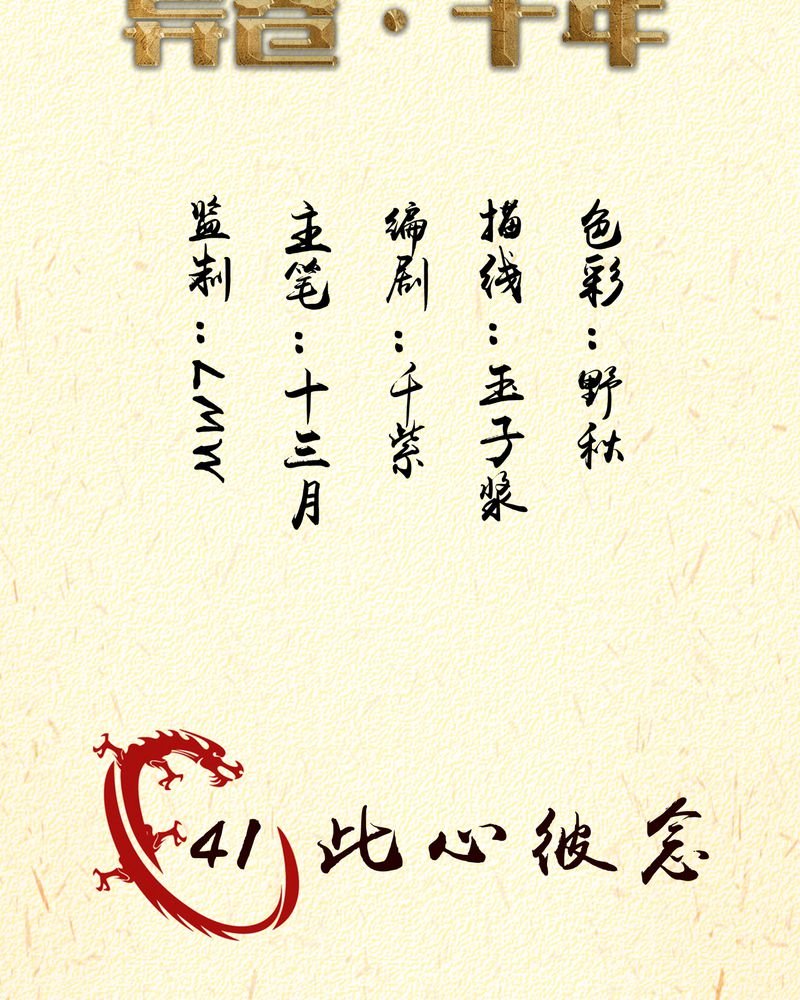 监制：
主笔：十三月
编剧：千紫
描线：玉子浆
色彩：野秋
41 此心彼念